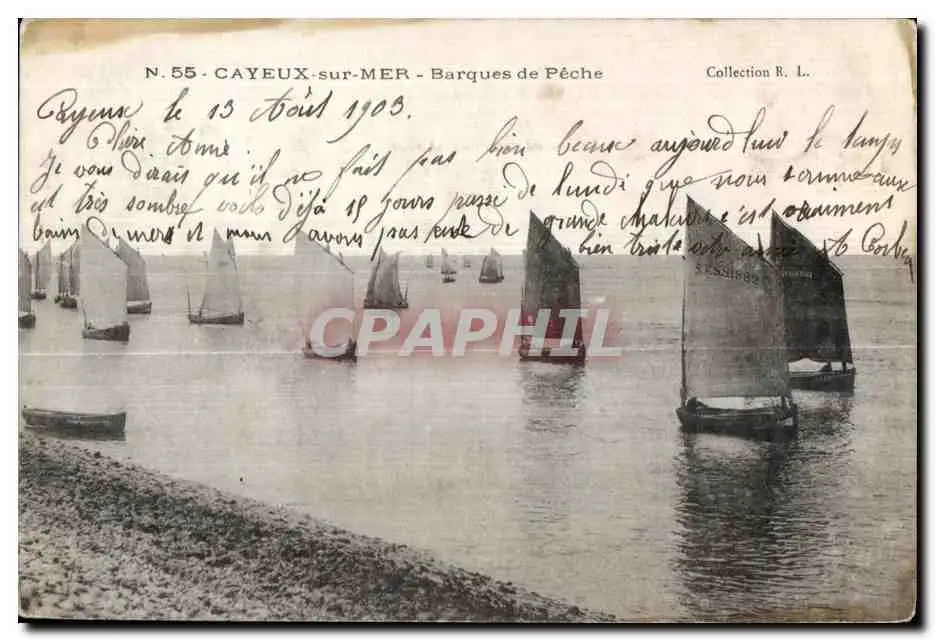 N. 55 - CAYEUX-sur-MER - Barques de Pêche
Collection R. L.
Cayeux le 13 Août 1903.
Chère Anna.
Je vous dirais qu'il ne fait pas bien beaux aujourd'hui le temps
est très sombre voilà déjà 15 jours passé de lundi que nous sommes aux
bains de mers et nous avons pas eue de grande chaleurs c'est vraiment
bien triste
CPAPHIL